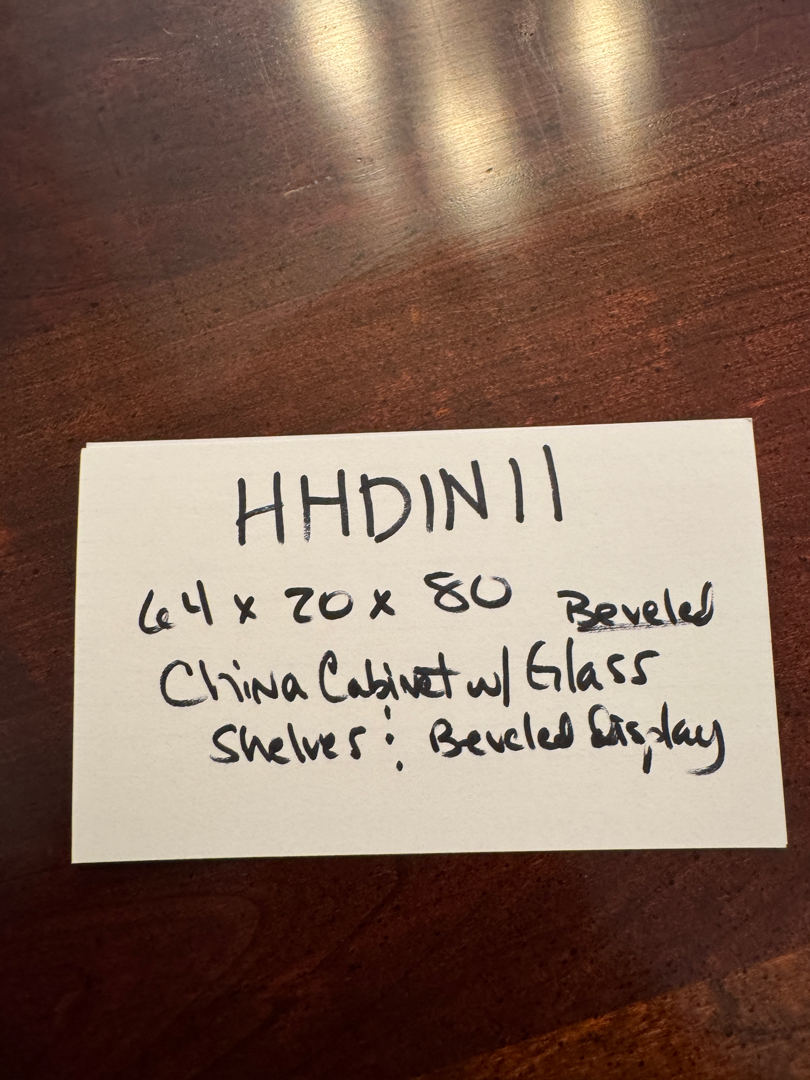 HHDIN11
64 x 20 x 80 Beveled
China Cabinet w/ Glass
Shelves : Beveled Display